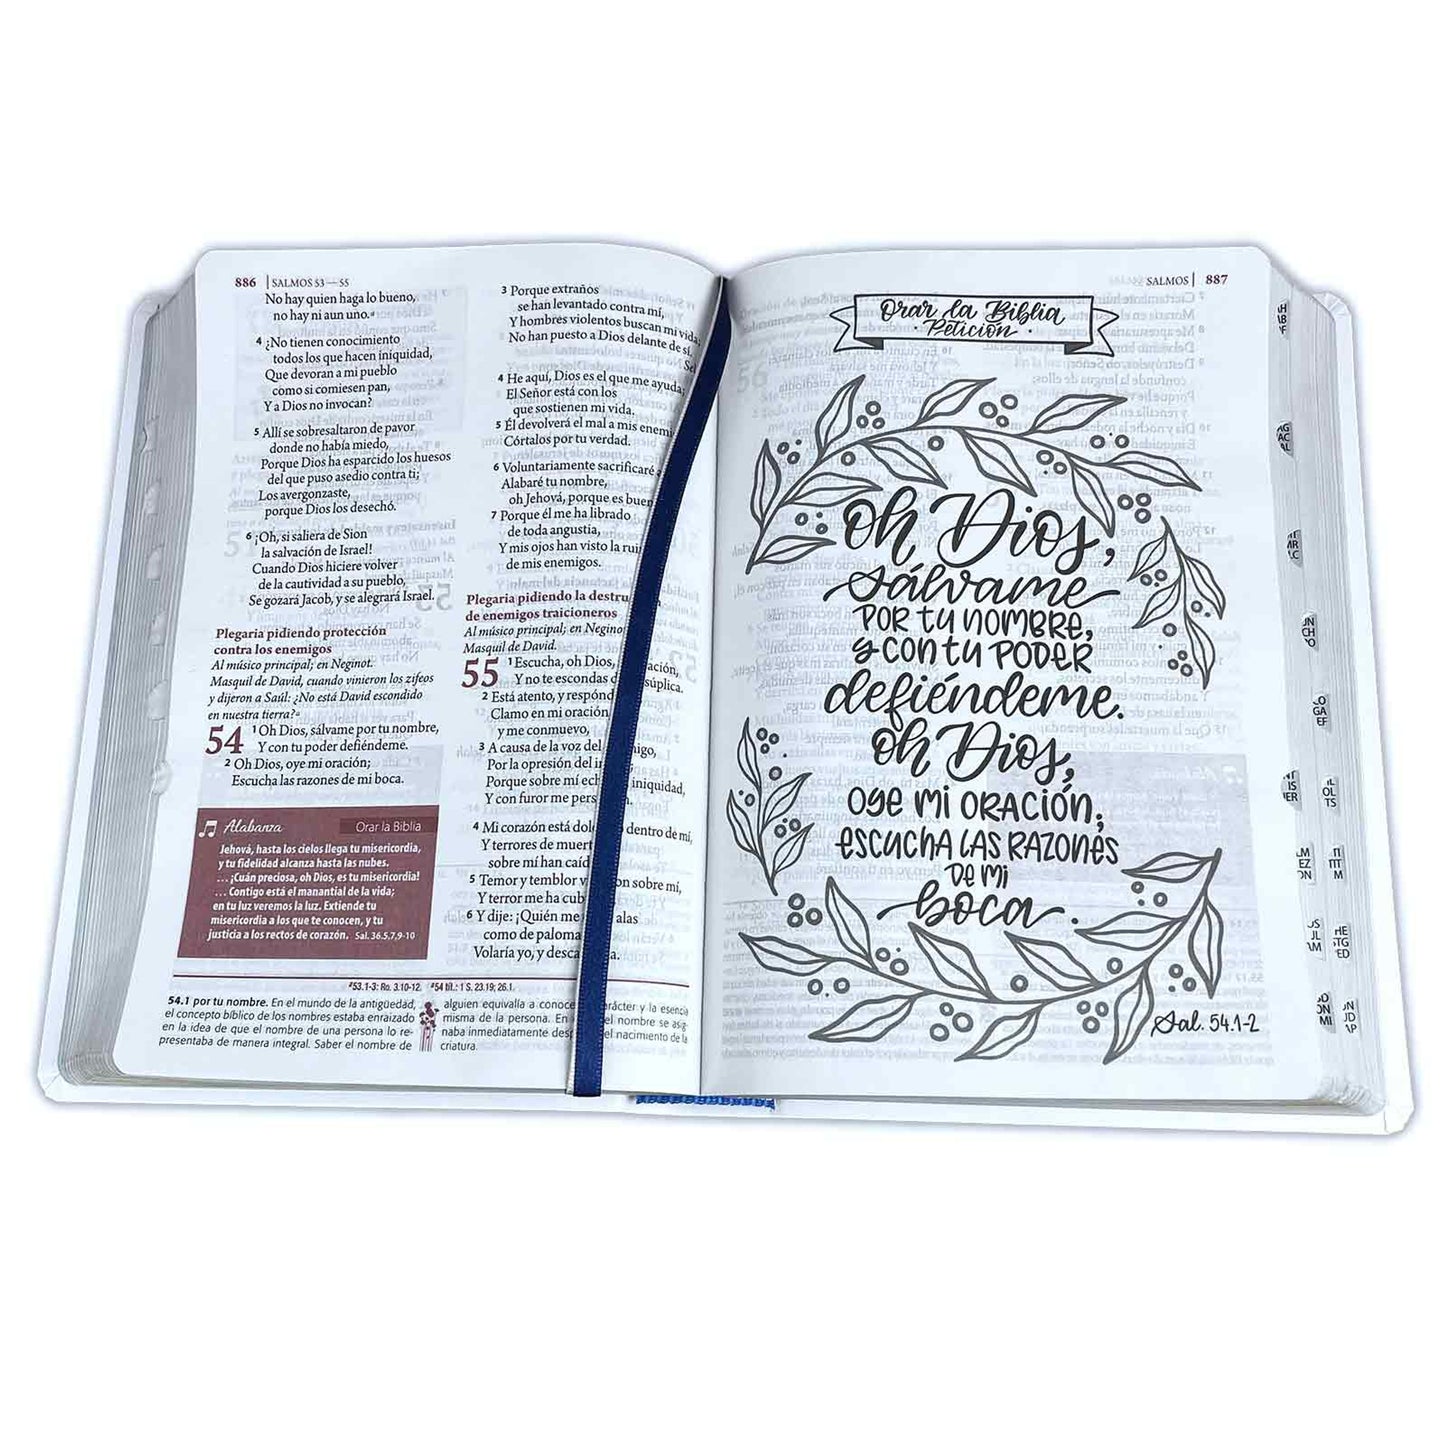 886 | SALMOS 53 — 55
No hay quien haga lo bueno,
no hay ni aun uno.ᵃ
4 ¿No tienen conocimiento
todos los que hacen iniquidad,
Que devoran a mi pueblo
como si comiesen pan,
Y a Dios no invocan?
5 Allí se sobresaltaron de pavor
donde no había miedo,
Porque Dios ha esparcido los huesos
del que puso asedio contra ti;
Los avergonzaste,
porque Dios los desechó.
6 ¡Oh, si saliera de Sion
la salvación de Israel!
Cuando Dios hiciere volver
de la cautividad a su pueblo,
Se gozará Jacob, y se alegrará Israel.
Plegaria pidiendo protección
contra los enemigos
Al músico principal; en Neginot.
Masquil de David, cuando vinieron los zifeos
y dijeron a Saúl: ¿No está David escondido
en nuestra tierra?ᵃ
54 1 Oh Dios, sálvame por tu nombre,
Y con tu poder defiéndeme.
2 Oh Dios, oye mi oración;
Escucha las razones de mi boca.
Alabanza Orar la Biblia
Jehová, hasta los cielos llega tu misericordia,
y tu fidelidad alcanza hasta las nubes.
. . . ¡Cuán preciosa, oh Dios, es tu misericordia!
. . . Contigo está el manantial de la vida;
en tu luz veremos la luz. Extiende tu
misericordia a los que te conocen, y tu
justicia a los rectos de corazón. Sal. 36.5,7,9-10
3 Porque extraños
se han levantado contra mí,
Y hombres violentos buscan mi vida
No han puesto a Dios delante de sí.
Sel
4 He aquí, Dios es el que me ayuda;
El Señor está con los
que sostienen mi vida.
5 Él devolverá el mal a mis enemi
Córtalos por tu verdad.
6 Voluntariamente sacrificaré a
Alabaré tu nombre,
oh Jehová, porque es buen
7 Porque él me ha librado
de toda angustia,
Y mis ojos han visto la rui
de mis enemigos.
Plegaria pidiendo la destru
de enemigos traicioneros
Al músico principal; en Negino
Masquil de David.
55 1 Escucha, oh Dios, ación,
Y no te escondas d súplica.
2 Está atento, y respónd
Clamo en mi oración
y me conmuevo,
3 A causa de la voz del igo,
Por la opresión del i
Porque sobre mí ech iniquidad,
Y con furor me per
4 Mi corazón está dol dentro de mí,
Y terrores de muert
sobre mí han caíd
5 Temor y temblor v on sobre mí,
Y terror me ha cub
6 Y dije: ¡Quién me alas
como de paloma
Volaría yo, y desca a.
ᵃ53.1-3: Ro. 3.10-12. ᵃ54 tít.: 1 S. 23.19; 26.1.
54.1 por tu nombre. En el mundo de la antigüedad,
el concepto bíblico de los nombres estaba enraizado
en la idea de que el nombre de una persona lo re-
presentaba de manera integral. Saber el nombre de
alguien equivalía a conoce arácter y la esencia
misma de la persona. En el nombre se asig-
naba inmediatamente desp el nacimiento de la
criatura.
SALMOS | 887
Orar la Biblia
· Petición ·
Oh Dios,
sálvame
por tu nombre,
y con tu poder
defiéndeme.
Oh Dios,
oye mi oración;
escucha las razones
de mi
boca.
Sal. 54.1-2